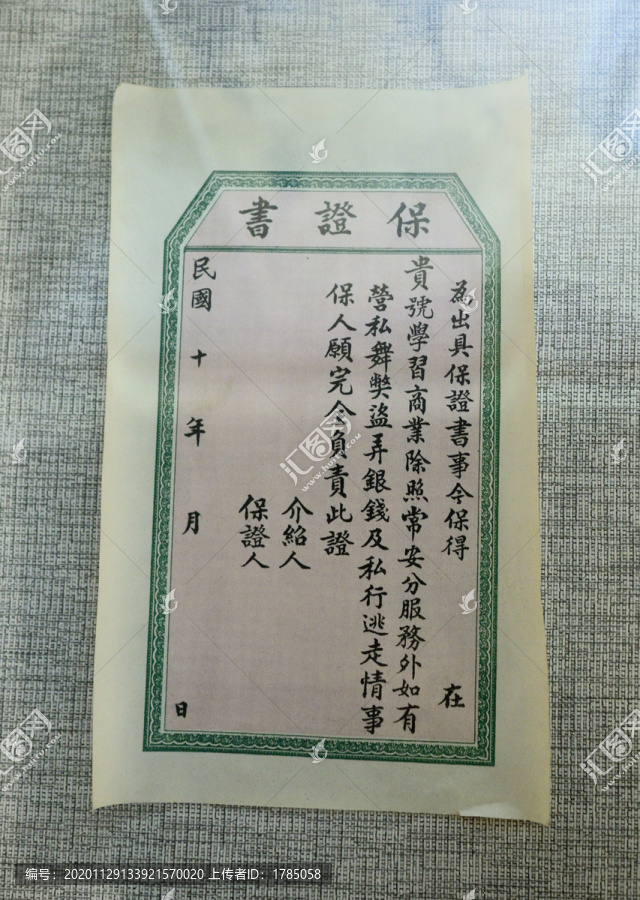 保證書
為出具保證書事今保得 在
貴號學習商業除照常安分服務外如有
營私舞弊盜弄銀錢及私行逃走情事
保人願完全負責此證
介紹人
保證人
民國 十 年 月 日
汇图网
编号：20201129133921570020 上传者ID：1785058